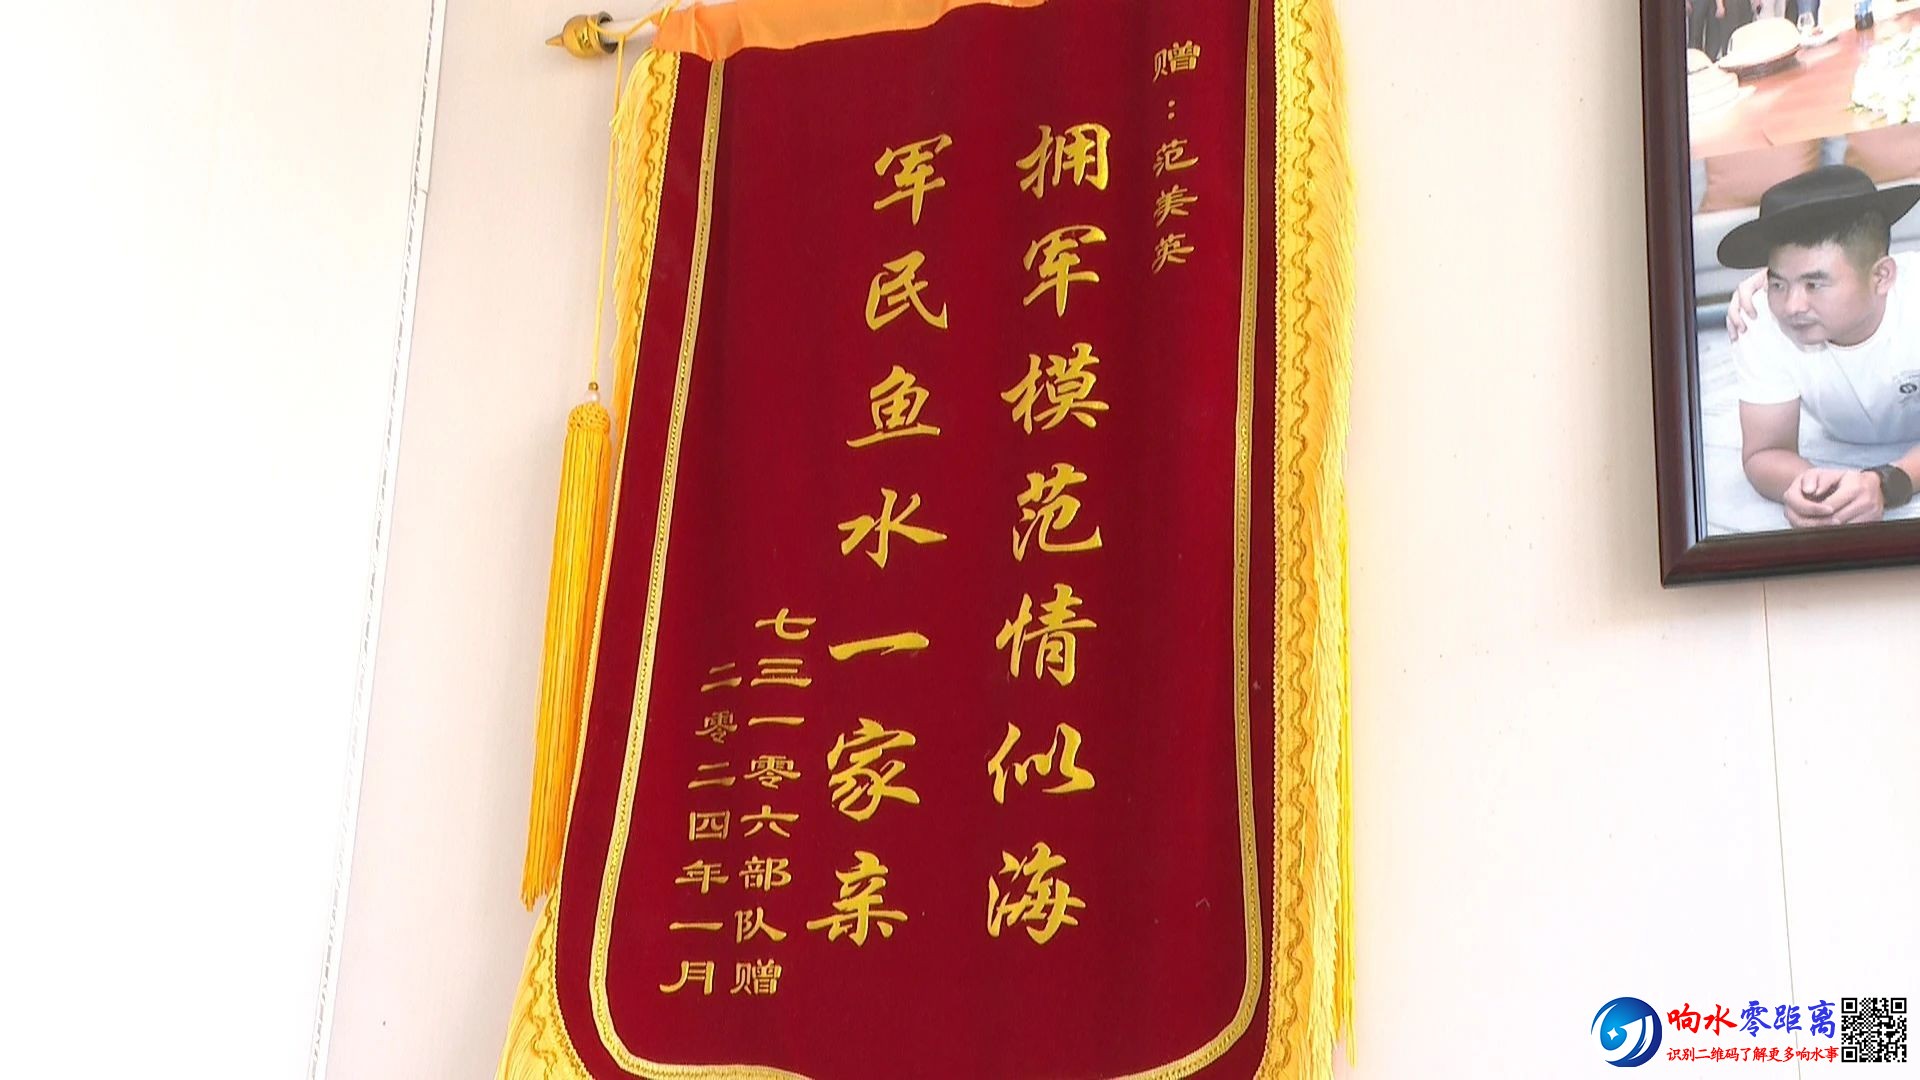 赠：范美英
拥军模范情似海
军民鱼水一家亲
七三一零六部队赠
二零二四年一月
响水零距离
识别二维码了解更多响水事